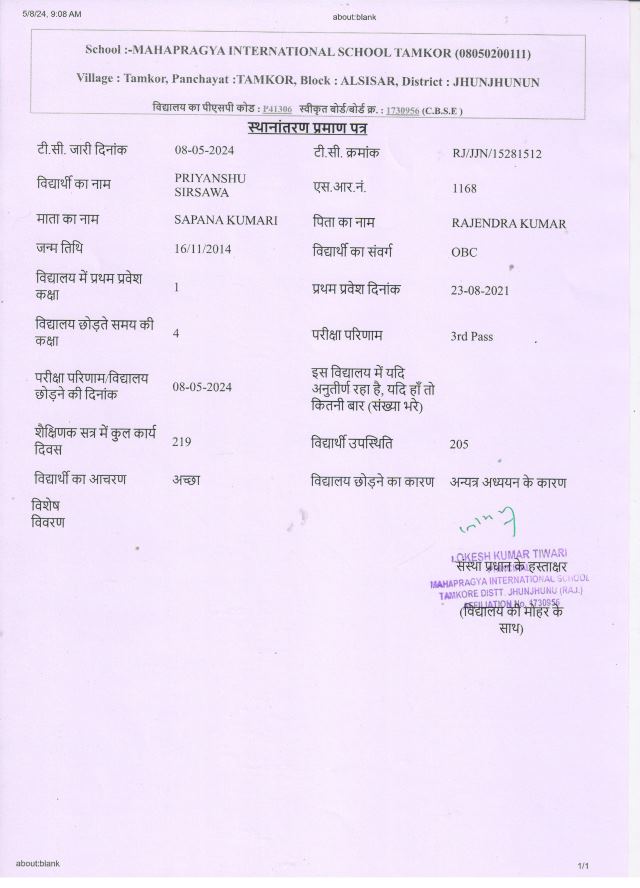 5/8/24, 9:08 AM about:blank
School :-MAHAPRAGYA INTERNATIONAL SCHOOL TAMKOR (08050200111)
Village : Tamkor, Panchayat :TAMKOR, Block : ALSISAR, District : JHUNJHUNUN
विद्यालय का पीएसपी कोड : P41306 स्वीकृत बोर्ड/बोर्ड क्र. : 1730956 (C.B.S.E )
स्थानांतरण प्रमाण पत्र
टी.सी. जारी दिनांक 08-05-2024 टी.सी. क्रमांक RJ/JJN/15281512
विद्यार्थी का नाम PRIYANSHU
SIRSAWA एस.आर.नं. 1168
माता का नाम SAPANA KUMARI पिता का नाम RAJENDRA KUMAR
जन्म तिथि 16/11/2014 विद्यार्थी का संवर्ग OBC
विद्यालय में प्रथम प्रवेश
कक्षा 1 प्रथम प्रवेश दिनांक 23-08-2021
विद्यालय छोड़ते समय की
कक्षा 4 परीक्षा परिणाम 3rd Pass
परीक्षा परिणाम/विद्यालय
छोड़ने की दिनांक 08-05-2024
इस विद्यालय में यदि
अनुतीर्ण रहा है, यदि हाँ तो
कितनी बार (संख्या भरे)
शैक्षिणक सत्र में कुल कार्य
दिवस 219 विद्यार्थी उपस्थिति 205
विद्यार्थी का आचरण अच्छा विद्यालय छोड़ने का कारण अन्यत्र अध्ययन के कारण
विशेष
विवरण
LOKESH KUMAR TIWARI
संस्था प्रधान के हस्ताक्षर
MAHAPRAGYA INTERNATIONAL SCHOOL
TAMKORE DISTT. JHUNJHUNU (RAJ.)
AFFILIATION No. 1730956
(विद्यालय की मोहर के
साथ)
about:blank 1/1